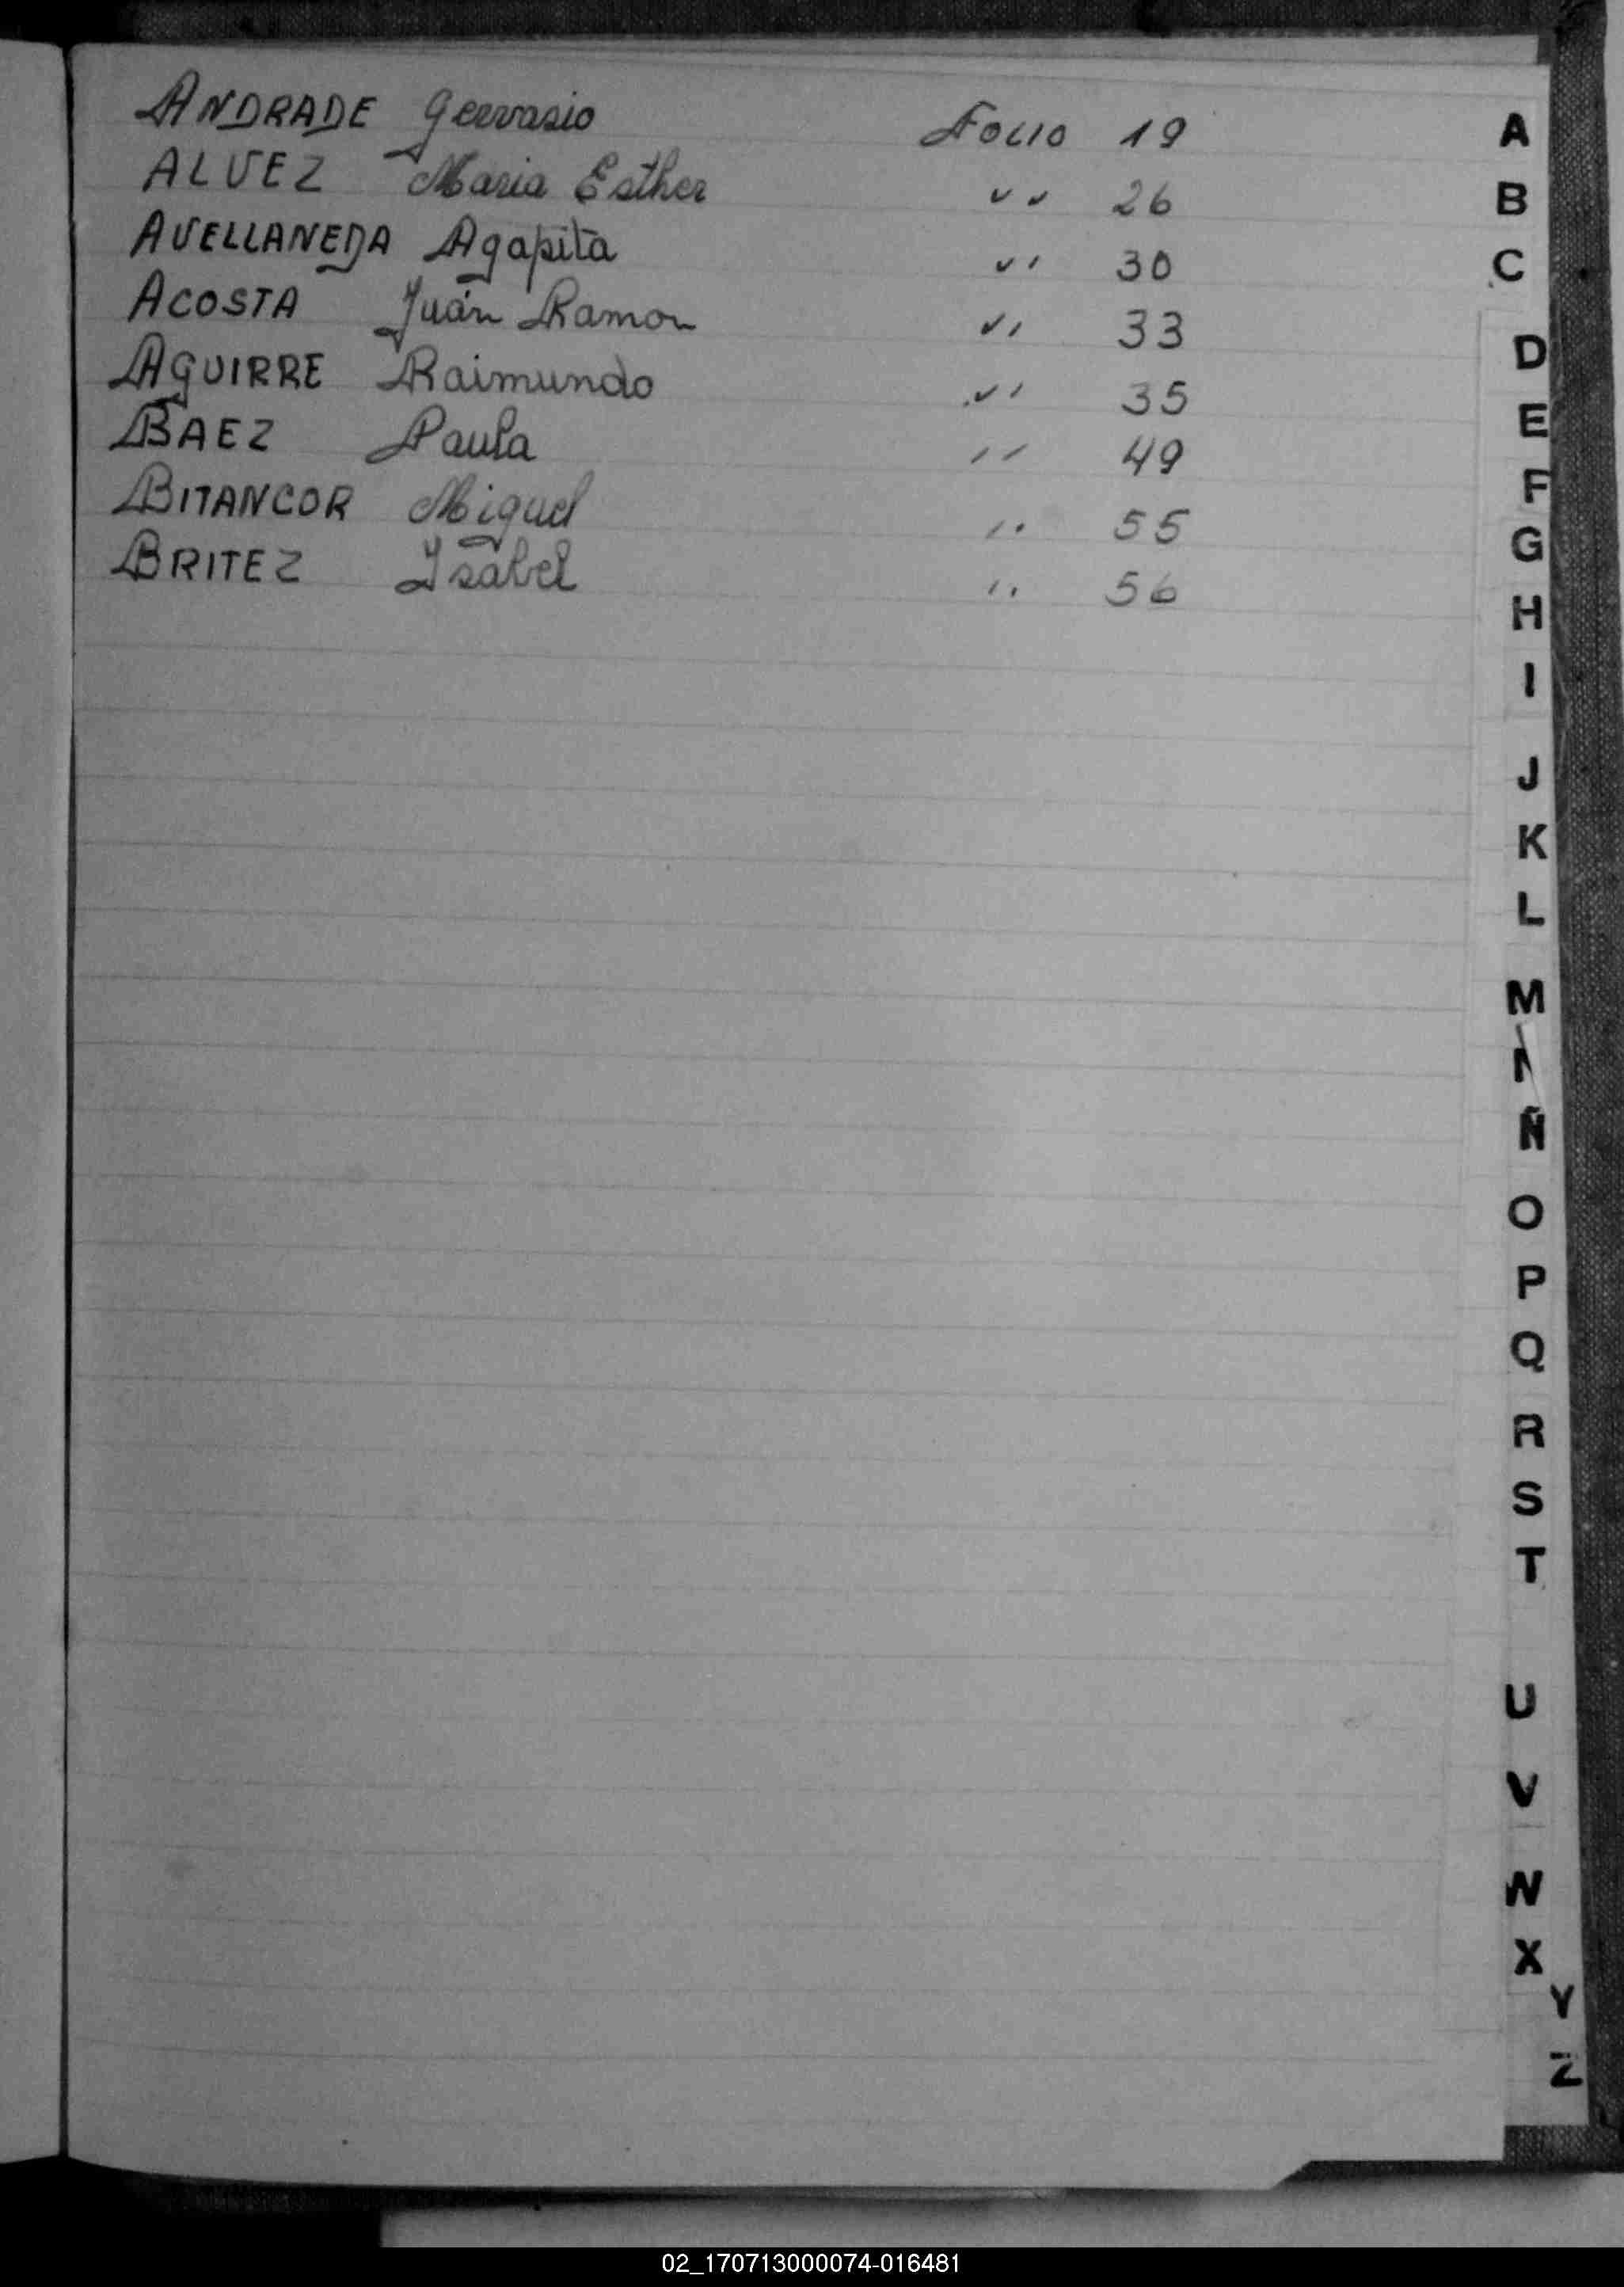 ANDRADE Gervasio Folio 19
ALVEZ Maria Esther " 26
AVELLANEDA Agapita " 30
ACOSTA Juan Ramon " 33
AGUIRRE Raimundo " 35
BAEZ Paula " 49
BITANCOR Miguel " 55
BRITEZ Ysabel " 56
A
B
C
D
E
F
G
H
I
J
K
L
M
N
Ñ
O
P
Q
R
S
T
U
V
W
X
Y
Z
02_170713000074-016481